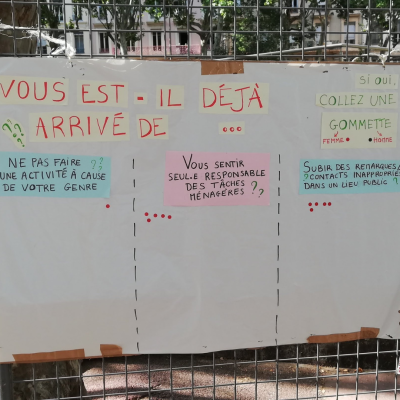 VOUS EST-IL DÉJÀ
?? ARRIVÉ DE ...
si oui,
COLLEZ UNE
GOMMETTE
FEMME HOMME
NE PAS FAIRE ??
UNE ACTIVITÉ À CAUSE
DE VOTRE GENRE
VOUS SENTIR
SEUL.E RESPONSABLE
DES TÂCHES
MÉNAGÈRES ??
SUBIR DES REMARQUES
? CONTACTS INAPPROPRIÉS
DANS UN LIEU PUBLIC ?